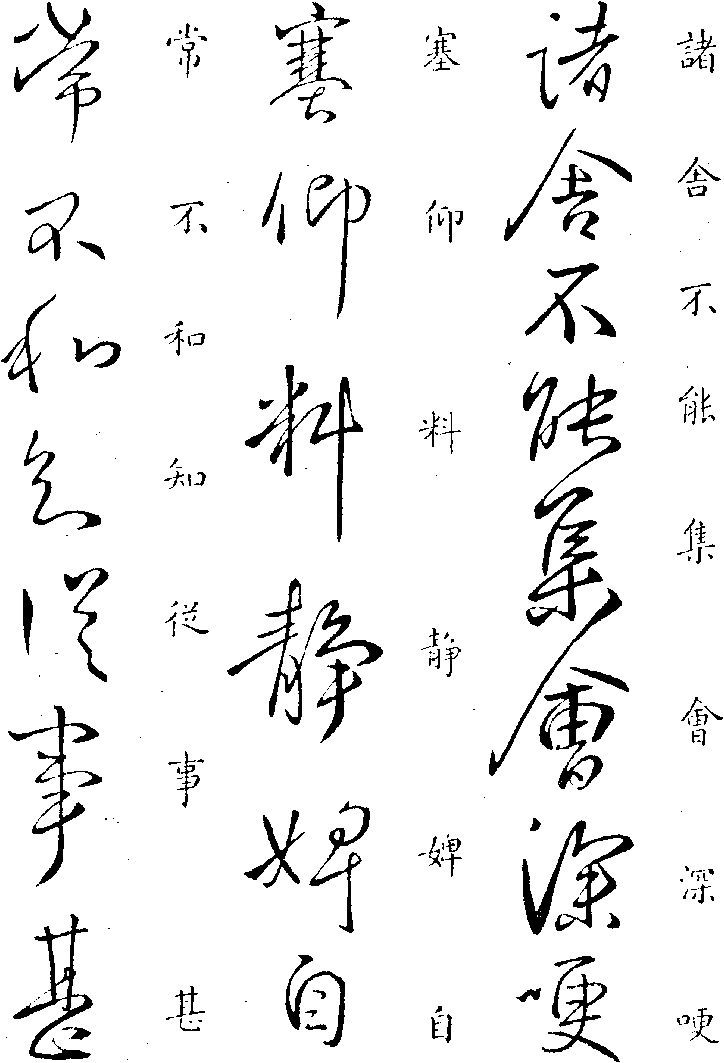 諸舎不能集會深哽
諸舎不能集會深哽
塞仰料静婢自
塞仰料静婢自
常不和知従事甚
常不和知従事甚